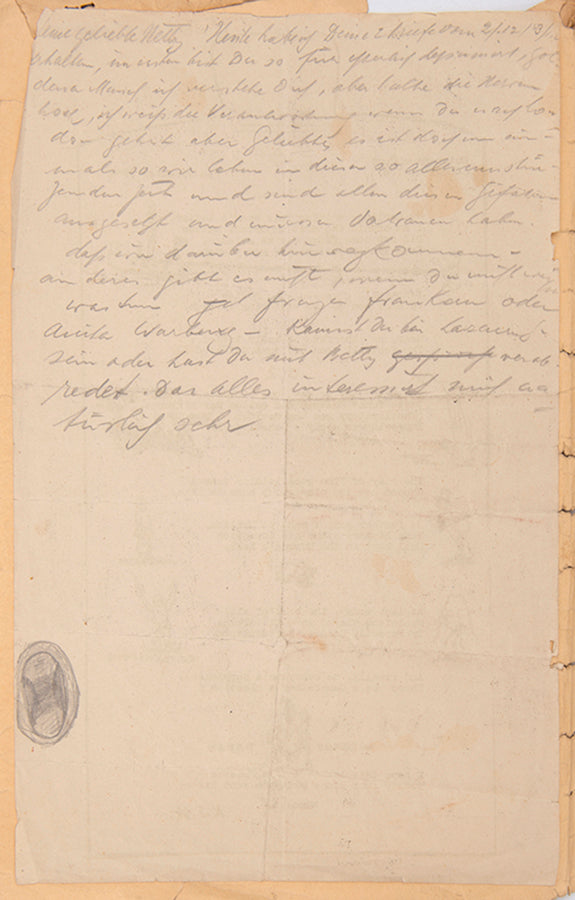 Meine geliebte Netty! Heute habe ich Deine 2 Briefe vom 2/12 / 3/12
erhalten, im ersten bist Du so furchtbar deprimiert,
dener Mensch ich verstehe Dich, aber halte die Nerven
hoch, ich weiß die Verantwortung wenn Du nach Lon
don gehst aber Geliebte, es ist doch nun ein
mal so wir leben in dieser so
Zeit und sind allen diesen Gefahren
ausgesetzt und müssen Vertrauen haben
daß wir darüber hinwegkommen –
anderes gibt es nicht, wenn Du nicht weißt
was tun frage Frankau oder
Anita Warburg – Kannst Du bei Lazarus
sein oder hast Du mit Betty verab
redet. Das alles interessiert mich na
türlich sehr.